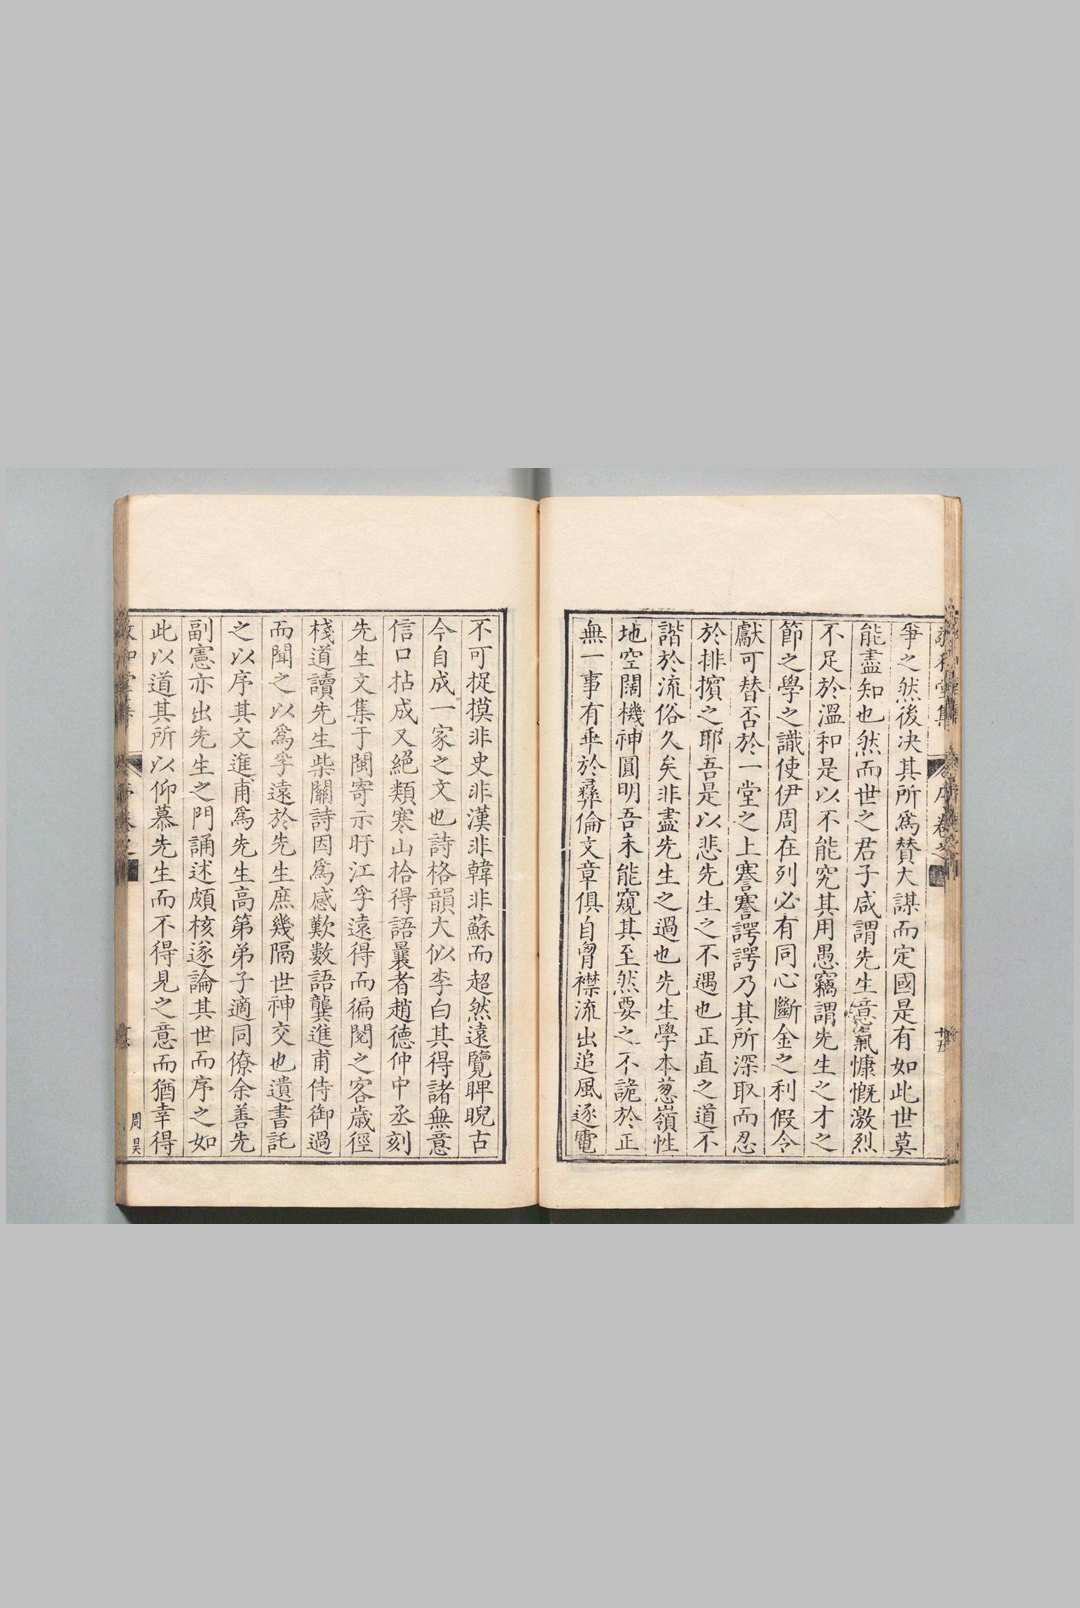 爭之然後决其所爲賛大謀而定國是有如此世莫
能盡知也然而世之君子咸謂先生意氣慷慨激烈
不足於溫和是以不能究其用愚竊謂先生之才之
節之學之識使伊周在列必有同心斷金之利假令
獻可替否於一堂之上謇謇諤諤乃其所深取而忍
於排擯之耶吾是以悲先生之不遇也正直之道不
諧於流俗久矣非盡先生之過也先生學本葱嶺性
地空闊機神圓明吾未能窺其至然要之不詭於正
無一事有乖於彞倫文章俱自胷襟流出追風逐電
不可捉摸非史非漢非韓非蘇而超然遠覽睥睨古
今自成一家之文也詩格韻大似李白其得諸無意
信口拈成又絕類寒山拾得語曩者趙德仲中丞刻
先生文集于閩寄示盱江孚遠得而徧閱之客歲徑
棧道讀先生柴關詩因爲感歎數語龔進甫侍御過
而聞之以爲孚遠於先生庶幾隔世神交也遺書託
之以序其文進甫爲先生高第弟子適同僚余善先
副憲亦出先生之門誦述頗核遂論其世而序之如
此以道其所以仰慕先生而不得見之意而猶幸得
周昊